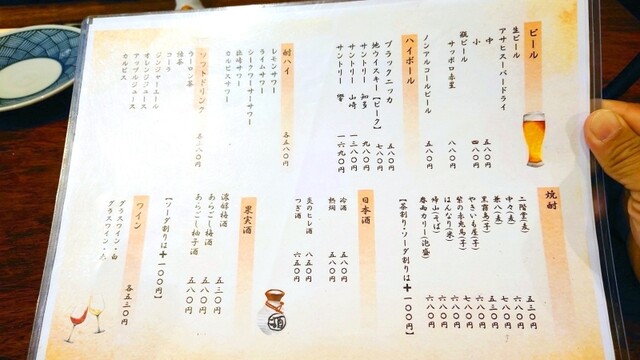 ビール
生ビール
アサヒスーパードライ
中 五八〇円
小 四八〇円
瓶ビール
サッポロ赤星 八八〇円
ノンアルコールビール 五八〇円
ハイボール
ブラックニッカ 五八〇円
地ウイスキー【ピーク】 七八〇円
サントリー 知多 九八〇円
サントリー 山崎 一三八〇円
サントリー 響 一六九〇円
酎ハイ 各五八〇円
レモンサワー
ライムサワー
シークワーサーサワー
カルピスサワー
ソフトドリンク 各三八〇円
ウーロン茶
緑茶
コーラ
ジンジャーエール
オレンジジュース
アップルジュース
カルピス
焼酎
二階堂(麦) 五三〇円
中々(麦) 五八〇円
兼八(麦) 六八〇円
黒霧島(芋) 五三〇円
やきいも屋(芋) 六八〇円
紫の赤兎馬(芋) 七八〇円
はんなり(米) 六八〇円
帰山(そば) 六八〇円
春雨カリー(泡盛) 六八〇円
【茶割り・ソーダ割りは＋一〇〇円】
日本酒
冷酒 五八〇円
熱燗 五八〇円
炙のヒレ酒 八五〇円
つぎ酒 六五〇円
果実酒
濃醇梅酒 五三〇円
あらごし梅酒 五八〇円
あらごし柚子酒 五八〇円
【ソーダ割りは＋一〇〇円】
ワイン 各五三〇円
グラスワイン・白
グラスワイン・赤